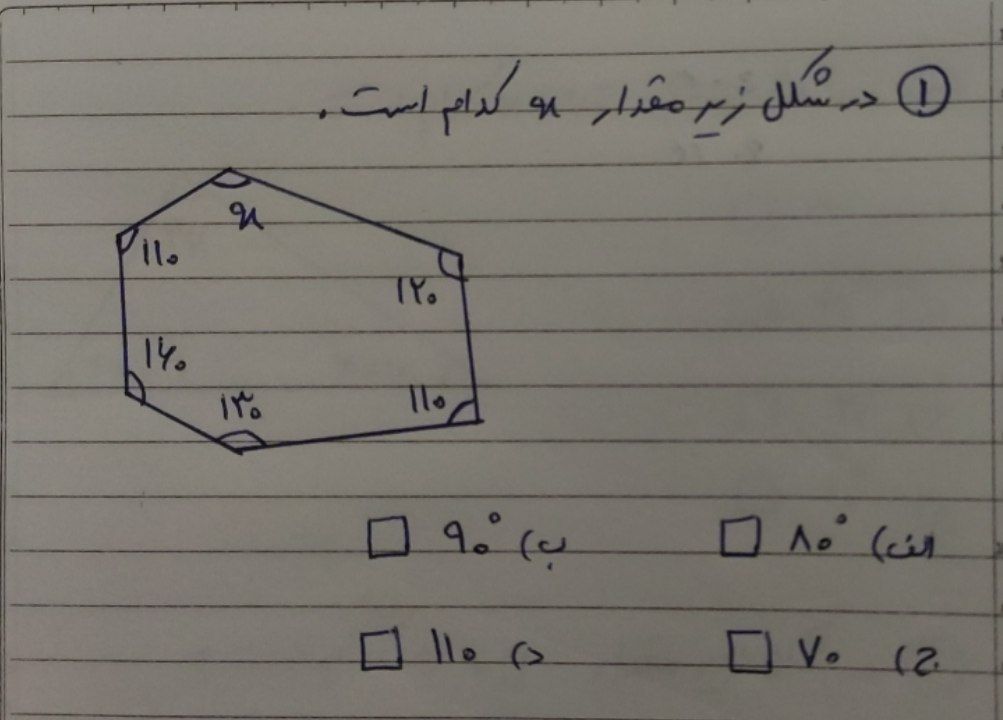 ۱ در شکل زیر مقدار x کدام است.
x
۱۱۰
۱۲۰
۱۶۰
۱۳۰
۱۱۰
الف) ۸۰° ب) ۹۰°
ج) ۷۰ د) ۱۱۰